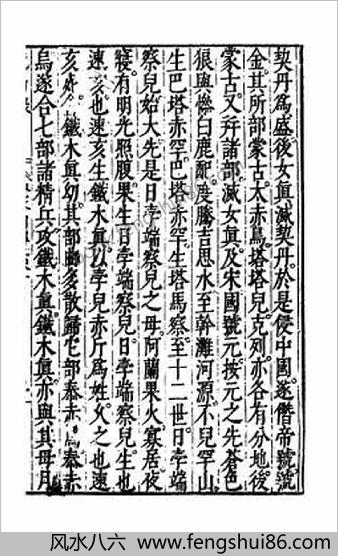 契丹為盛後女真滅契丹於是侵中國遂僭帝號號
金其所部蒙古太赤烏塔塔兒克列亦各有分地後
蒙古又并諸部滅女真及宋國號元按元之先蒼色
狼與慘白鹿配度騰吉思水至斡灘河源不兒罕山
生巴塔赤罕巴塔赤罕生塔馬察至十二世曰孛端
察兒始大先是曰孛端察兒之母阿蘭果火寡居夜
寢有明光照腹果生曰孛端察兒曰孛端察兒生也
速亥也速亥生鐵木真以孛兒赤斤為姓久之也速
亥死鐵木真幼其部多散歸它部泰赤烏泰赤
烏遂合七部諸精兵攻鐵木真鐵木真亦與其母月
风水八六 www.fengshui86.com